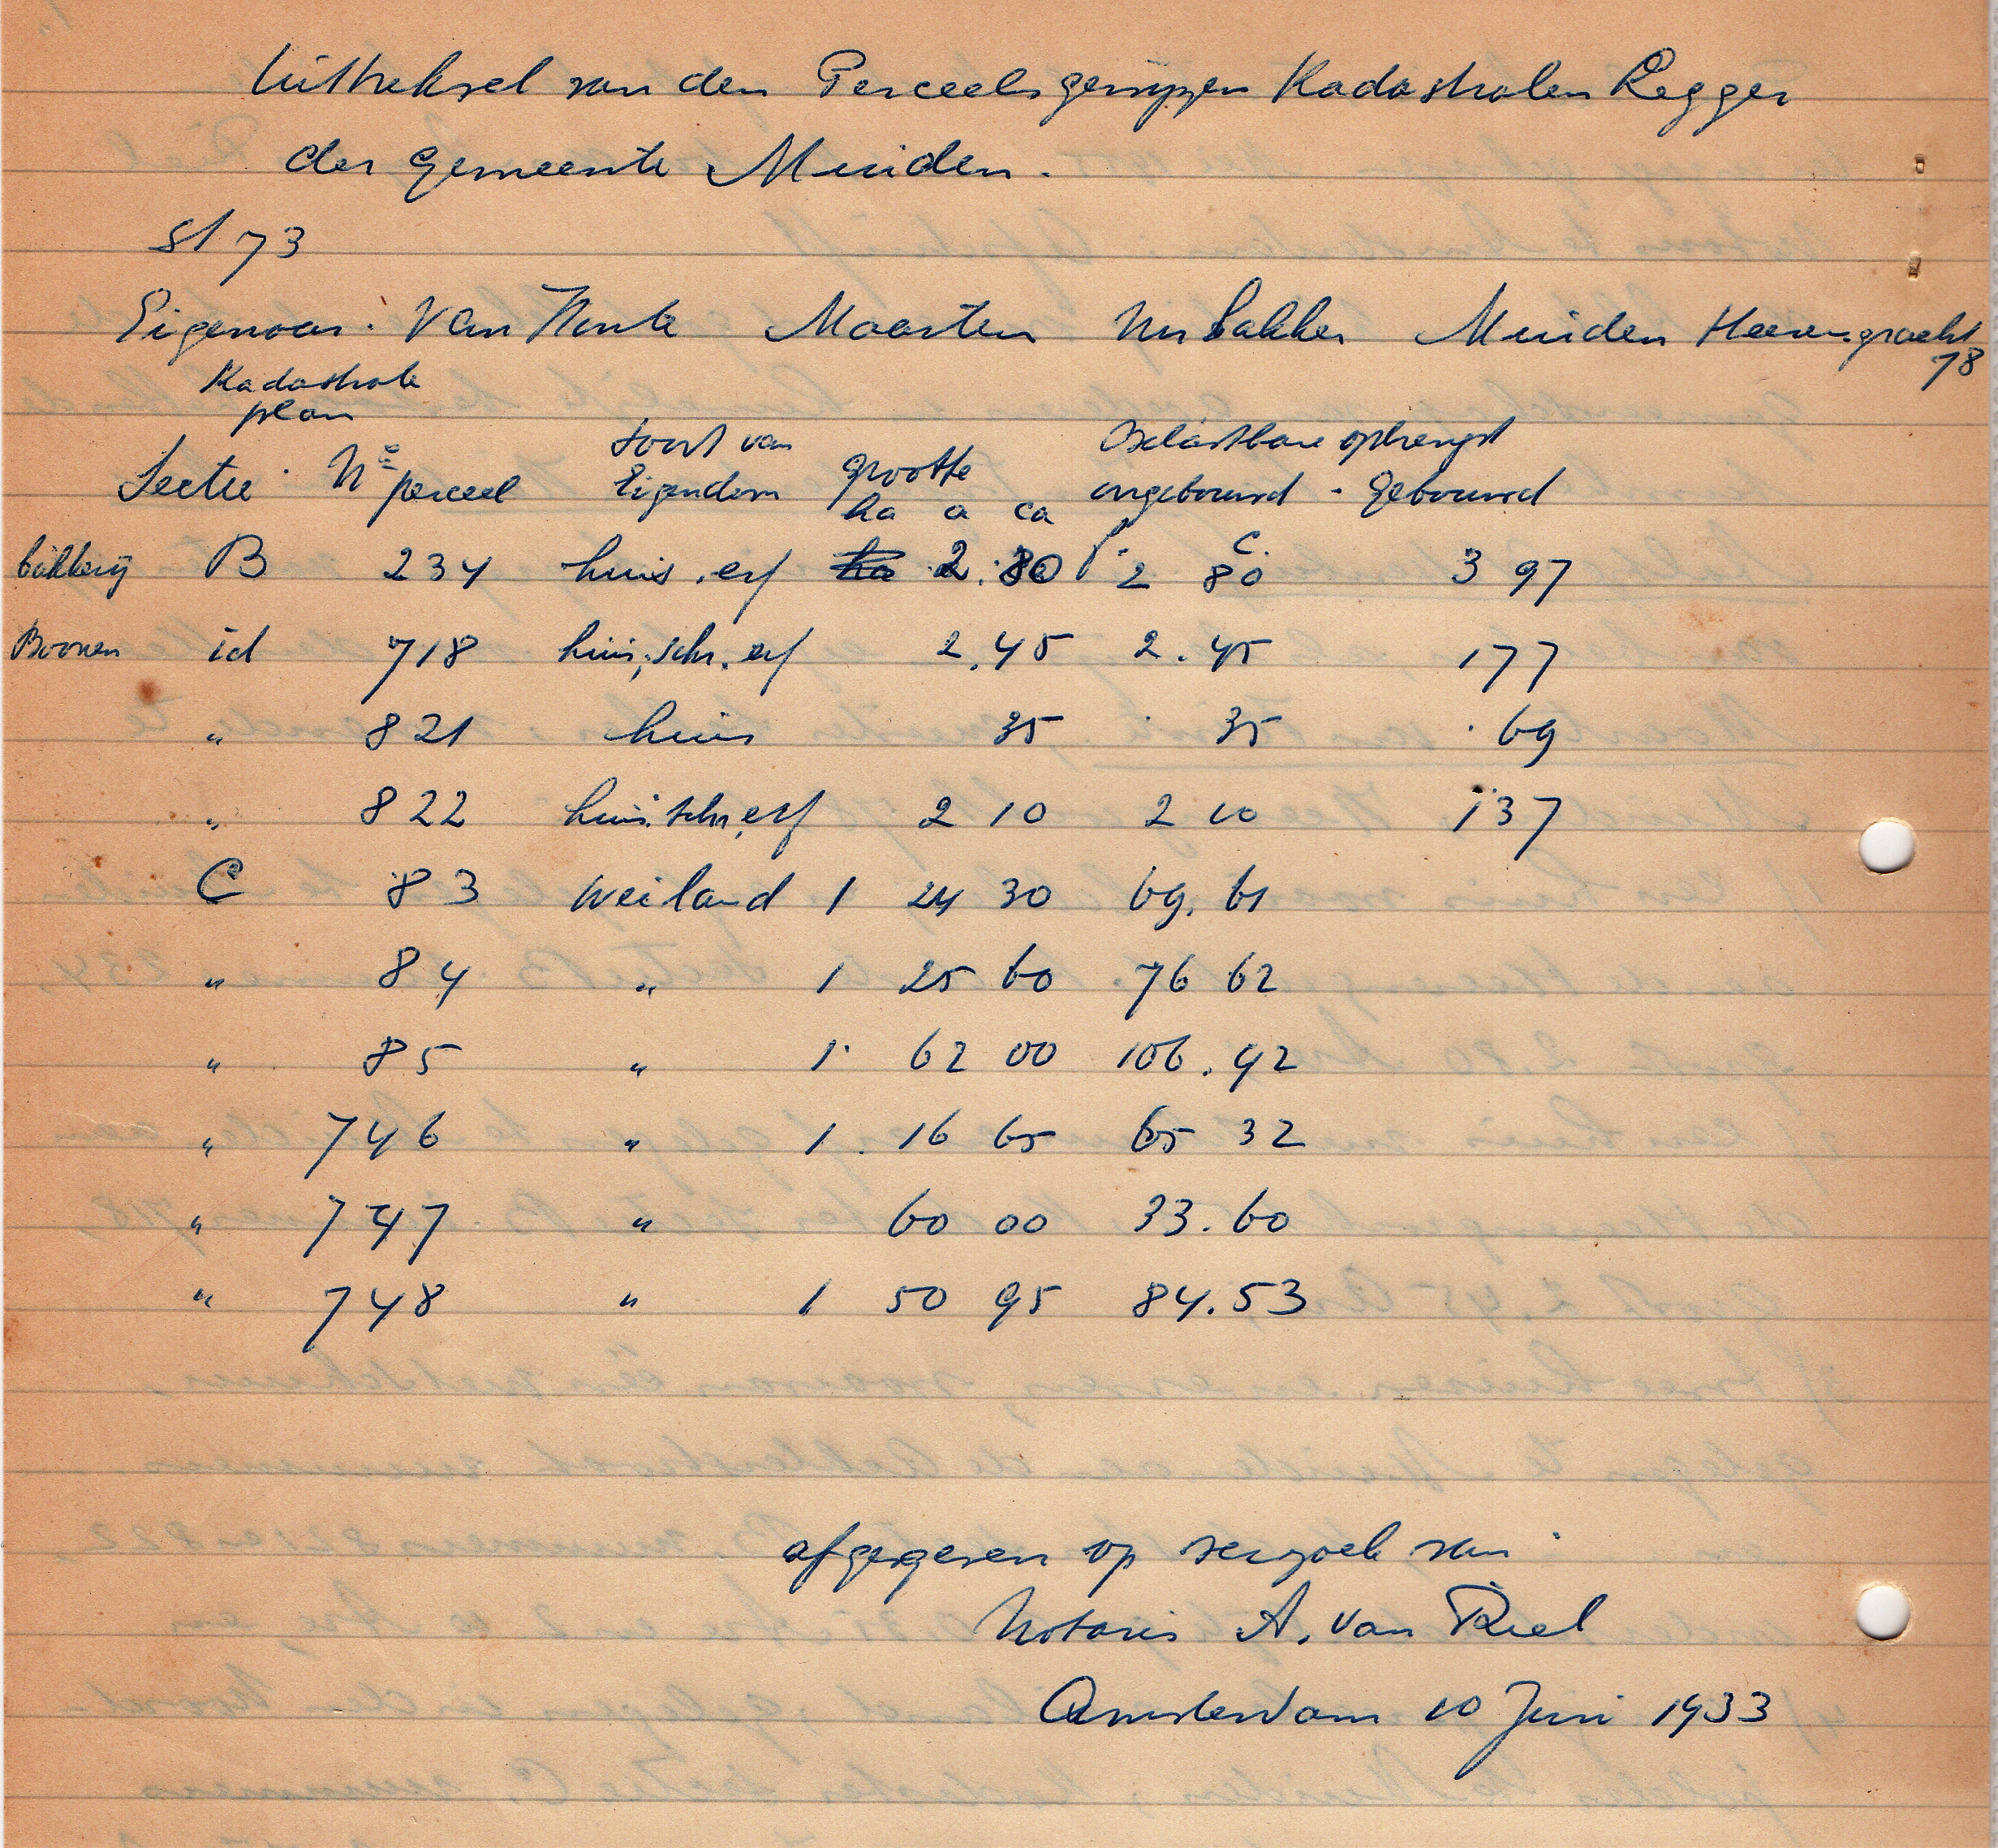 Uittreksel van den Perceelsgewijzen Kadastralen Legger
der gemeente Muiden.
St 73
Eigenaar: Van Maarten bakker Muiden Heerengracht
78
Kadastrale
plan
Sectie Nº perceel soort van Eigendom grootte ha a ca Belastbare opbrengst ongebouwd - gebouwd
f. c.
bakkerij B 234 huis, erf 2.80 2 80 397
Boonen id 718 huis, schr. erf 2.45 2.45 177
" 821 huis 35 35 69
" 822 huis, schr, erf 2 10 2 10 137
C 83 weiland 1 24 30 69.61
" 84 " 1 25 60 76 62
" 85 " 1 62 00 106.92
" 746 " 1 16 65 65 32
" 747 " 60 00 33.60
" 748 " 1 50 95 84.53
afgegeven op verzoek van
Notaris A. van Riel
Amsterdam 10 Juni 1933